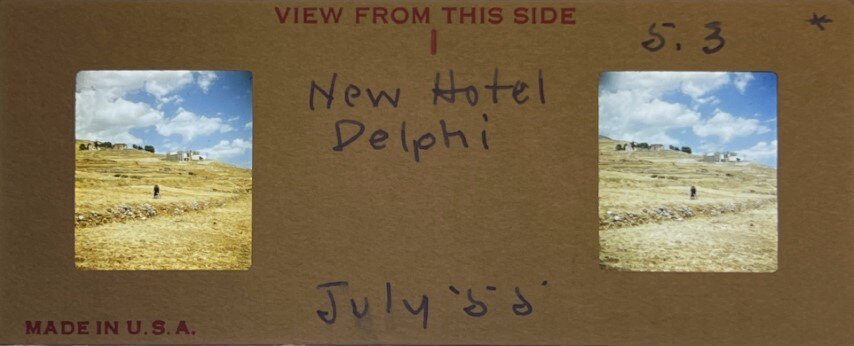 VIEW FROM THIS SIDE
5.3 *
New Hotel
Delphi
July '55
MADE IN U.S.A.